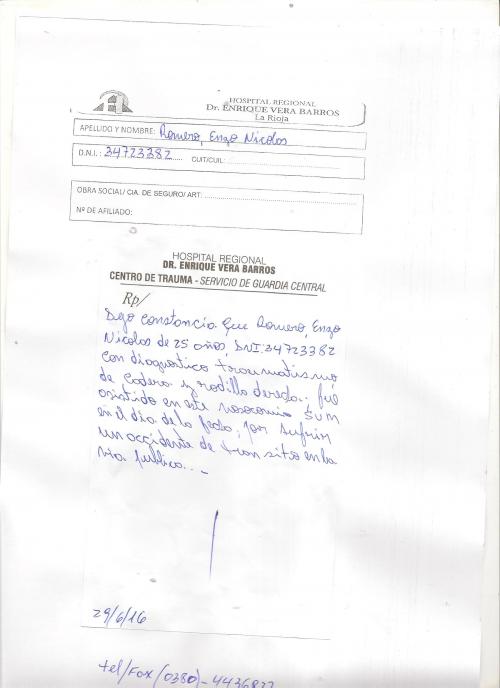 HOSPITAL REGIONAL
Dr. ENRIQUE VERA BARROS
La Rioja
APELLIDO Y NOMBRE: Romero, Enzo Nicolas
D.N.I.: 34723382 CUIT/CUIL:
OBRA SOCIAL/ CIA. DE SEGURO/ ART:
Nº DE AFILIADO:
HOSPITAL REGIONAL
DR. ENRIQUE VERA BARROS
CENTRO DE TRAUMA - SERVICIO DE GUARDIA CENTRAL
Rp/
Dejo constancia que Romero, Enzo
Nicolas de 25 años, DNI:34723382
con diagnostico traumatismo
de Cadera y rodilla derecha, fue
asistido en este nosocomio
en el dia de la fecha, por sufrir
un accidente de transito en la
via publica.._
29/6/16
tel/Fax (0380)-4436822